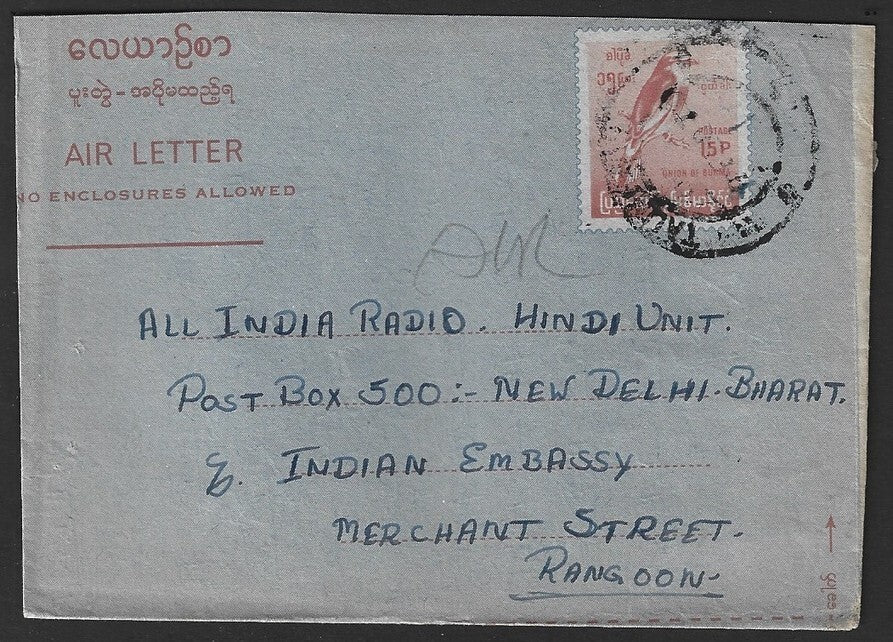 လေယာဉ်စာ
ပူးတွဲ - အပိုမထည့်ရ
AIR LETTER
NO ENCLOSURES ALLOWED
POSTAGE
15P
UNION OF BURMA
AIR
ALL INDIA RADIO. HINDI UNIT.
POST BOX 500:- NEW DELHI. BHARAT.
INDIAN EMBASSY
MERCHANT STREET.
RANGOON-